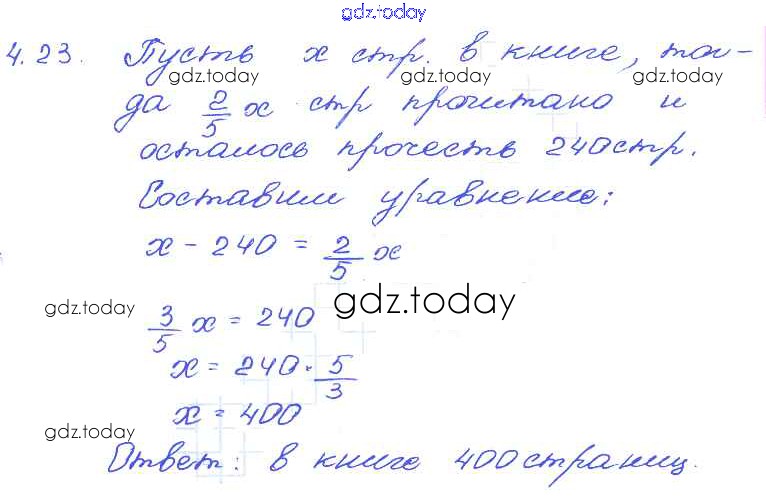 gdz.today
4.23. Пусть x стр. в книге, тог-
gdz.today gdz.today gdz.today
да 2/5 x стр прочитано и
осталось прочесть 240 стр.
Составим уравнение:
x - 240 = 2/5 x
gdz.today gdz.today
3/5 x = 240
x = 240 · 5/3
x = 400
gdz.today
Ответ: в книге 400 страниц.